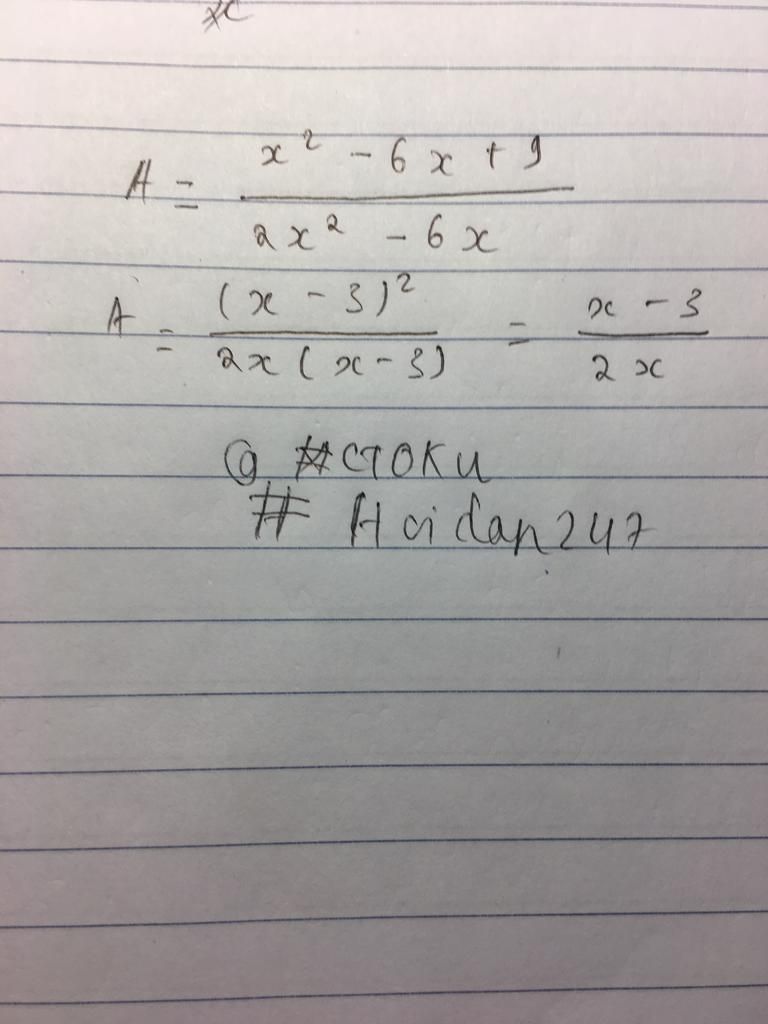 A = x² - 6x + 9 / 2x² - 6x
A = (x - 3)² / 2x(x - 3) = x - 3 / 2x
@ #GOKU
# Hoidap247